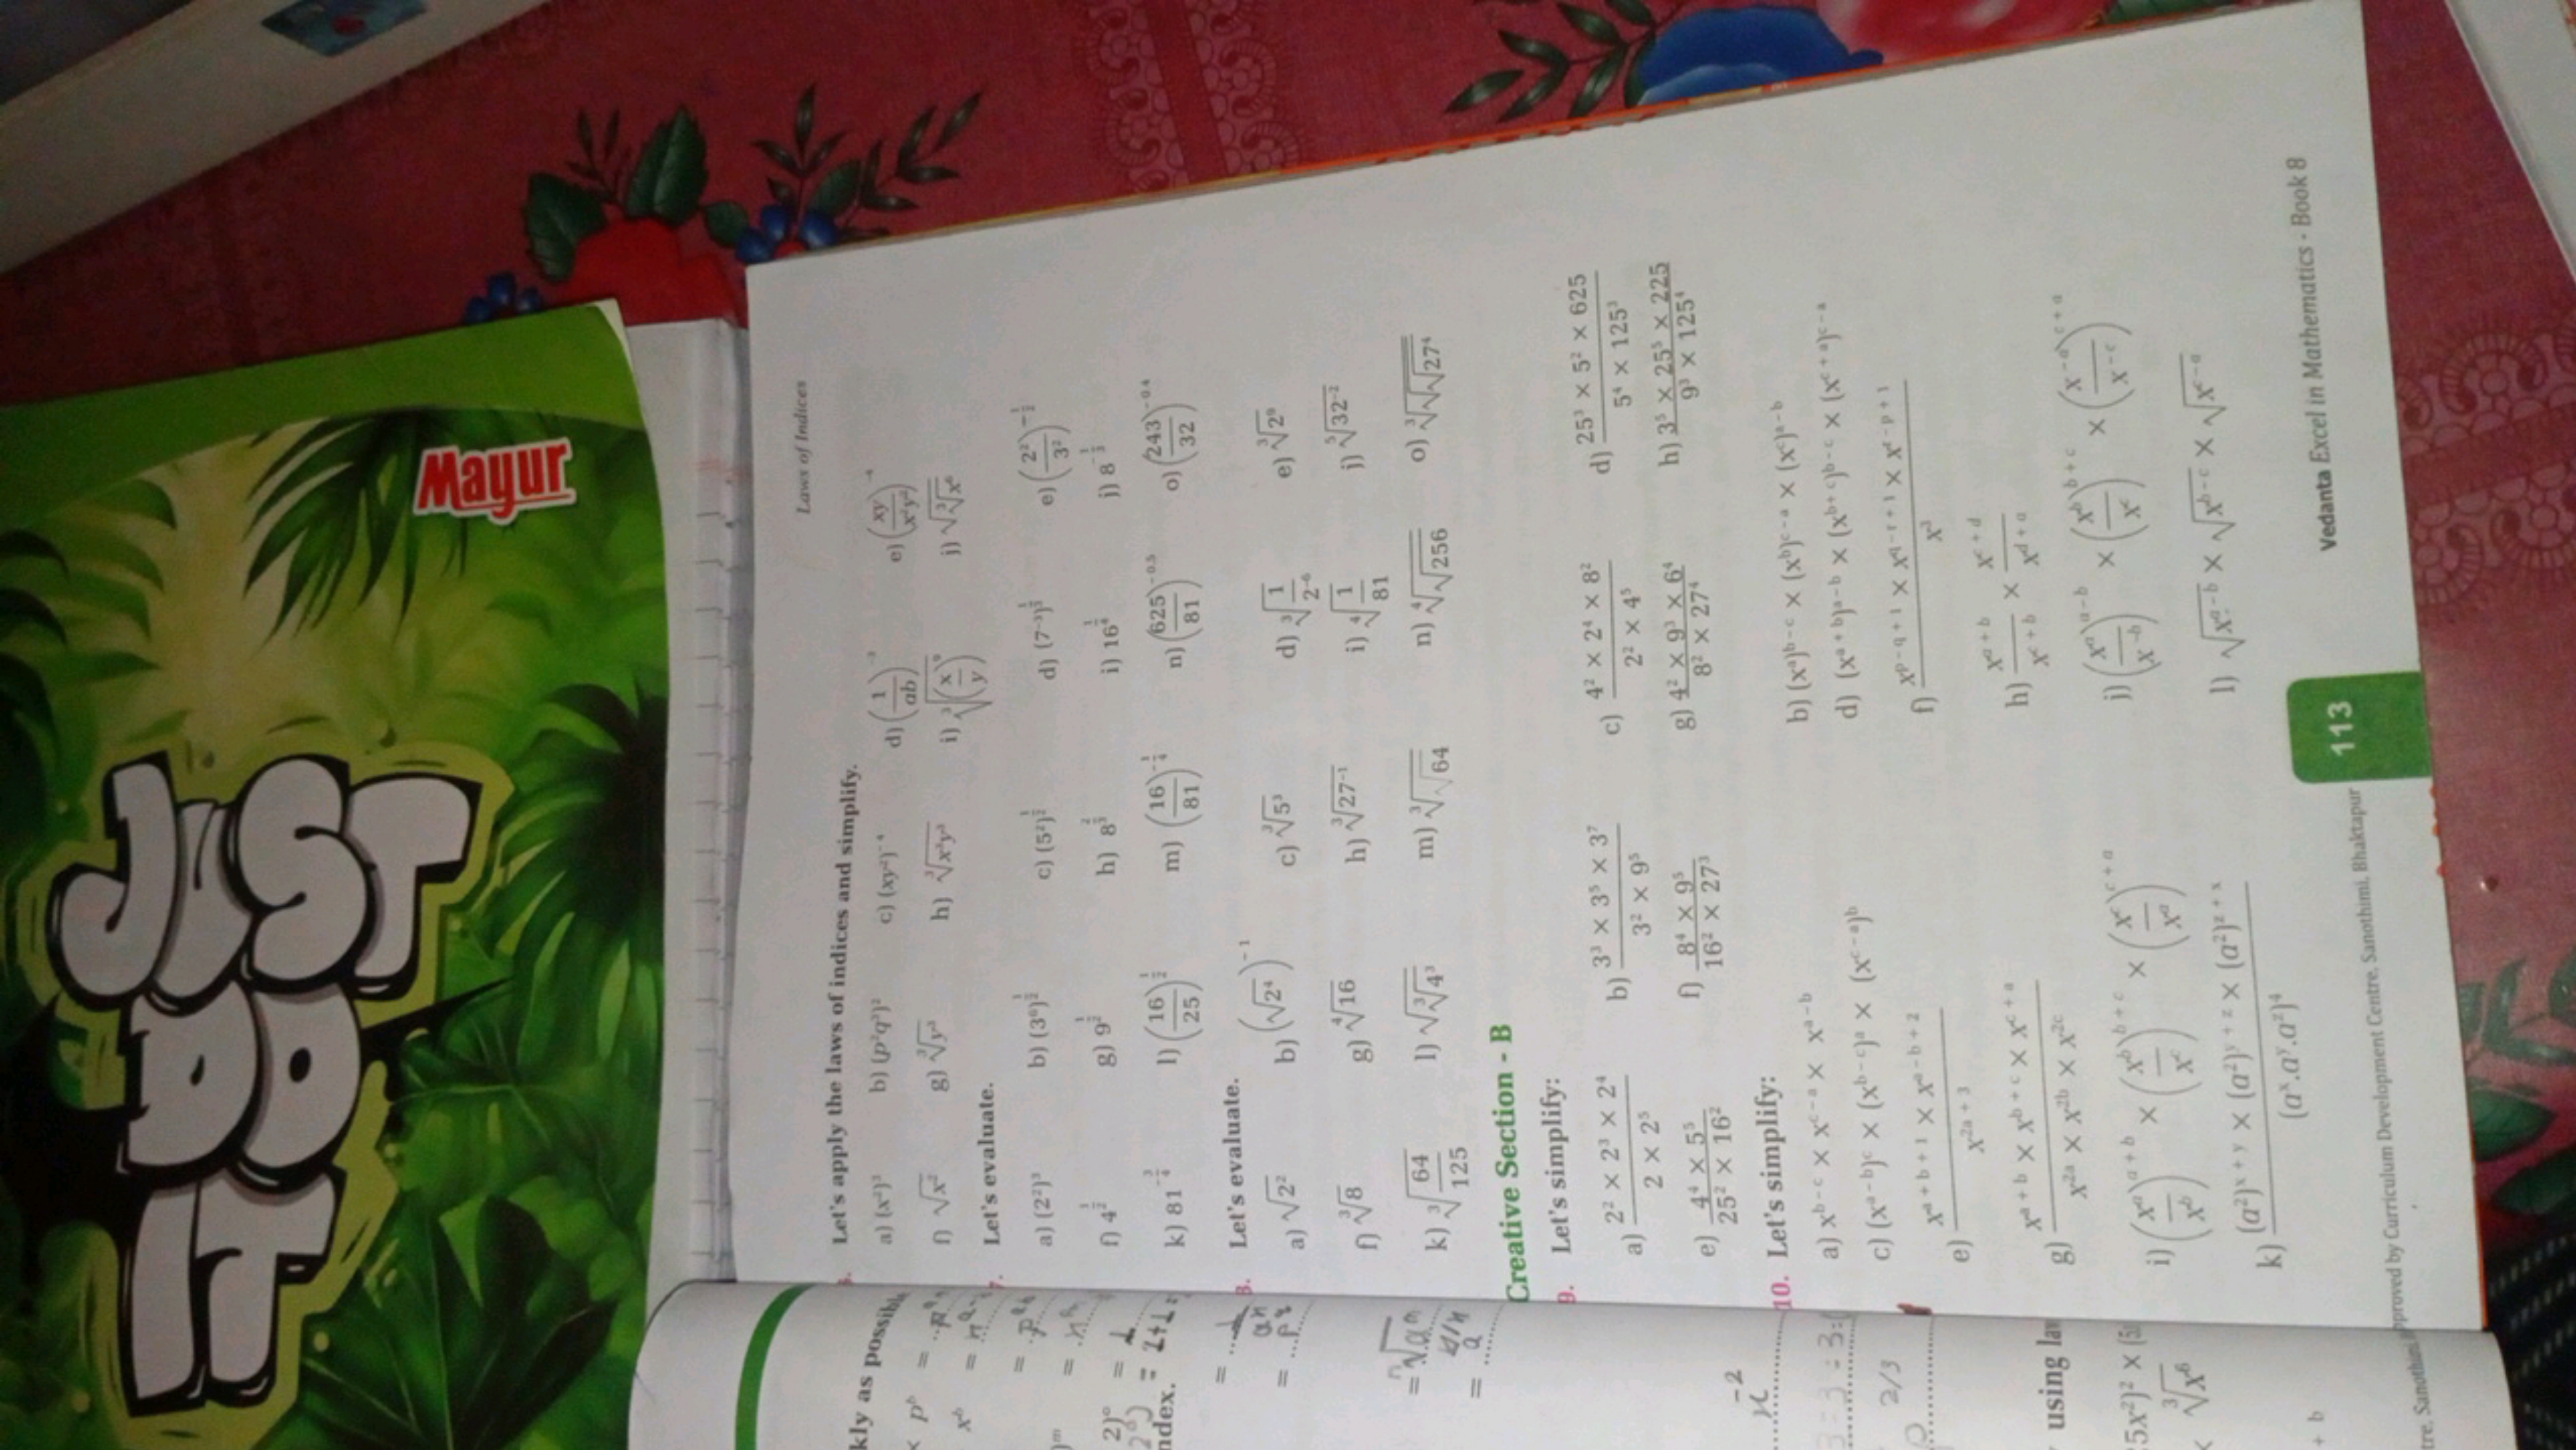 JUST
DO
IT
Mayur
Laws of Indices
Let's apply the laws of indices and simplify.
a) (x²)³ b) (p²q³)² c) (xy²)⁻⁴ d) (1/ab)⁻³ e) (xy/x²y²)⁻⁴
f) √x² g) ∛y³ h) ∛x³y³ i) ∛(x/y)⁹ j) √∛x⁶
7. Let's evaluate.
a) (2²)³ b) (3⁶)^½ c) (5²)^½ e) (2²/3²)^-½
f) 4^½ g) 9^½ h) 8^⅔ i) 16^¼ j) 8^-⅓
k) 81^-¾ l) (16/25)^½ m) (16/81)^-¼ n) (625/81)^-0.5 o) (243/32)^-0.4
8. Let's evaluate.
a) √2² b) (√2⁴)⁻¹ c) ∛5³ d) ∛(1/2⁻⁶) e) ∛2⁹
f) ∛8 g) ∜16 h) ∛27⁻¹ i) ∜(1/81) j) ⁵√32⁻²
k) ∛(64/125) l) √∛4³ m) ∛√64 n) ∜√256 o) ∛√√27⁴
Creative Section - B
9. Let's simplify:
a) (2² × 2³ × 2⁴)/(2 × 2⁵) b) (3³ × 3⁵ × 3⁷)/(3² × 9⁵) c) (4² × 2⁴ × 8²)/(2² × 4⁵) d) (25³ × 5² × 625)/(5⁴ × 125³)
e) (4⁴ × 5⁵)/(25² × 16²) f) (8⁴ × 9⁵)/(16² × 27³) g) (4² × 9³ × 6⁴)/(8² × 27⁴) h) (3⁵ × 25⁵ × 225)/(9³ × 125⁴)
10. Let's simplify:
a) x^(b-c) × x^(c-a) × x^(a-b) b) (x^a)^(b-c) × (x^b)^(c-a) × (x^c)^(a-b)
c) (x^(a-b))^c × (x^(b-c))^a × (x^(c-a))^b d) (x^(a+b))^(a-b) × (x^(b+c))^(b-c) × (x^(c+a))^(c-a)
e) (x^(a+b+1) × x^(a-b+2))/x^(2a+3) f) (x^(p-q+1) × x^(q-r+1) × x^(r-p+1))/x³
g) (x^(a+b) × x^(b+c) × x^(c+a))/(x^2a × x^2b × x^2c) h) x^(a+b)/x^(c+b) × x^(c+d)/x^(d+a)
i) (x^a/x^b)^(a+b) × (x^b/x^c)^(b+c) × (x^c/x^a)^(c+a) j) (x^a/x^-b)^(a-b) × (x^b/x^c)^(b+c) × (x^-a/x^-c)^(c+a)
k) ((a²)^(x+y) × (a²)^(y+z) × (a²)^(z+x))/(a^x.a^y.a^z)⁴ l) √x^(a-b) × √x^(b-c) × √x^(c-a)
Approved by Curriculum Development Centre, Sanothimi, Bhaktapur 113 Vedanta Excel in Mathematics - Book 8
kly as possibl
ndex.
using la
tre, Sanothimi